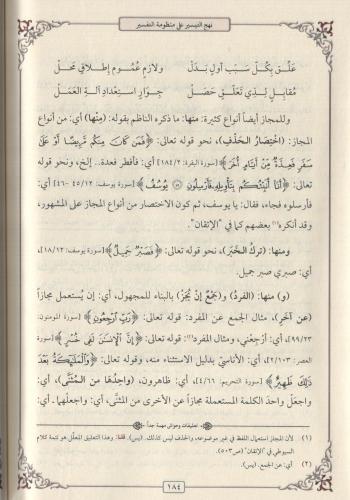 نهج التيسير على منظومة التفسير
عَلِّق بِكُلٍّ سَبَبٍ أول بَدَلْ ولازمٍ عُمومٍ إطلاقٍ مَحَلّْ
مُقابِلٍ لِذِي تَعَلُّقٍ حَصَلْ جِوارٍ استِعْدادِ آلةِ العَمَلْ
وللمجاز أيضاً أنواع كثيرة: منها: ما ذكره الناظم بقوله: (مِنْها) أي: من أنواع
المجاز: (اختِصارُ الحَذْفِ)، نحو قوله تعالى: ﴿فَمَن كَانَ مِنكُم مَّرِيضًا أَوْ عَلَىٰ
سَفَرٍ فَعِدَّةٌ مِّنْ أَيَّامٍ أُخَرَ﴾ [سورة البقرة: ١٨٤/٢] أي: فأفطر فعدة.. إلخ، ونحو قوله
تعالى: ﴿أَنَا۠ أُنَبِّئُكُم بِتَأْوِيلِهِۦ فَأَرْسِلُونِ ۝ يُوسُفُ﴾ [سورة يوسف: ٤٥/١٢ -٤٦] أي:
فأرسلوه فجاء، فقال: يا يوسف، ثم كون الاختصار من أنواع المجاز على المشهور،
وقد أنكره(١) بعضهم كما في "الإتقان".
ومنها: (تركُ الخَبَر)، نحو قوله تعالى: ﴿فَصَبْرٌ جَمِيلٌ﴾ [سورة يوسف: ١٨/١٢]،
أي: صبري صبر جميل.
(و) منها: (الفردُ) و(جَمْعٌ إنْ يُجَزْ) بالبناء للمجهول، أي: إن يُستعمل مجازاً
(عن آخَرِ)، مثال الجمع عن المفرد: قوله تعالى: ﴿رَبِّ ارْجِعُونِ﴾ [سورة المؤمنون:
٩٩/٢٣]، أي: أَرجِعْني، ومثال المفرد(٢): قوله تعالى: ﴿إِنَّ الْإِنسَانَ لَفِي خُسْرٍ﴾ [سورة
العصر: ٢/١٠٣]، أي: الأناسيّ بدليل الاستثناء منه، وقوله تعالى: ﴿وَالْمَلَائِكَةُ بَعْدَ
ذَٰلِكَ ظَهِيرٌ﴾ [سورة التحريم: ٤/٦٦]، أي: ظاهرون، (واجِدُها من المُثنَّى)، أي:
واجعل واحدَ الكلمة المستعملة مجازاً عن الأخرى من المثنّى، أي: واجعلها ـ أي:
تعليقات وحواش مهمة جداً
(١) لأن المجاز استعمال اللفظ في غير موضوعه، والحذف ليس كذلك. (يس). قلنا: وهذا التعليق المعلل هو تتمة كلام
السيوطي في "الإتقان" (ص٥٠٣).
(٢) أي: عن الجمع. (يس).
١٨٤